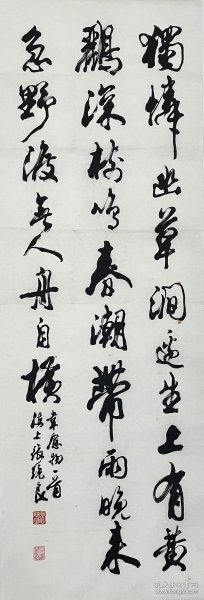 獨憐幽草澗邊生上有黃
鸝深樹鳴春潮帶雨晚來
急野渡無人舟自橫
韋應物一首
海上張統良